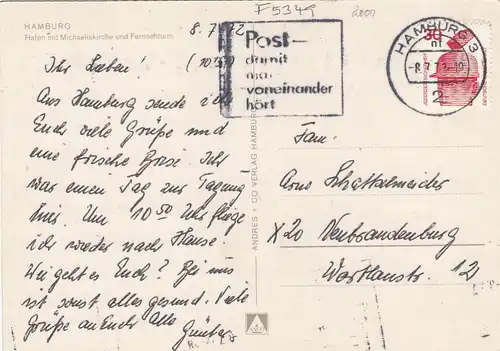 F5349
2000
HAMBURG
Hafen mit Michaeliskirche und Fernsehturm
8.7.72
Post-
damit
man
voneinander
hört
HAMBURG 3
-8.7.72-19
2
30
Ihr Lieben! (10³⁰)
Aus Hamburg sende ich
Euch viele Grüße und
eine frische Brise. Ich
war einen Tag zur Tagung
hier. Um 10⁵⁰ Uhr fliege
ich wieder nach Hause.
Wie geht es Euch? Bei uns
ist sonst alles gesund. Viele
Grüße an Euch alle
Günter
ANDRES + CO VERLAG HAMBURG
Fam.
Arno Schattschneider
X20 Neubrandenburg
12